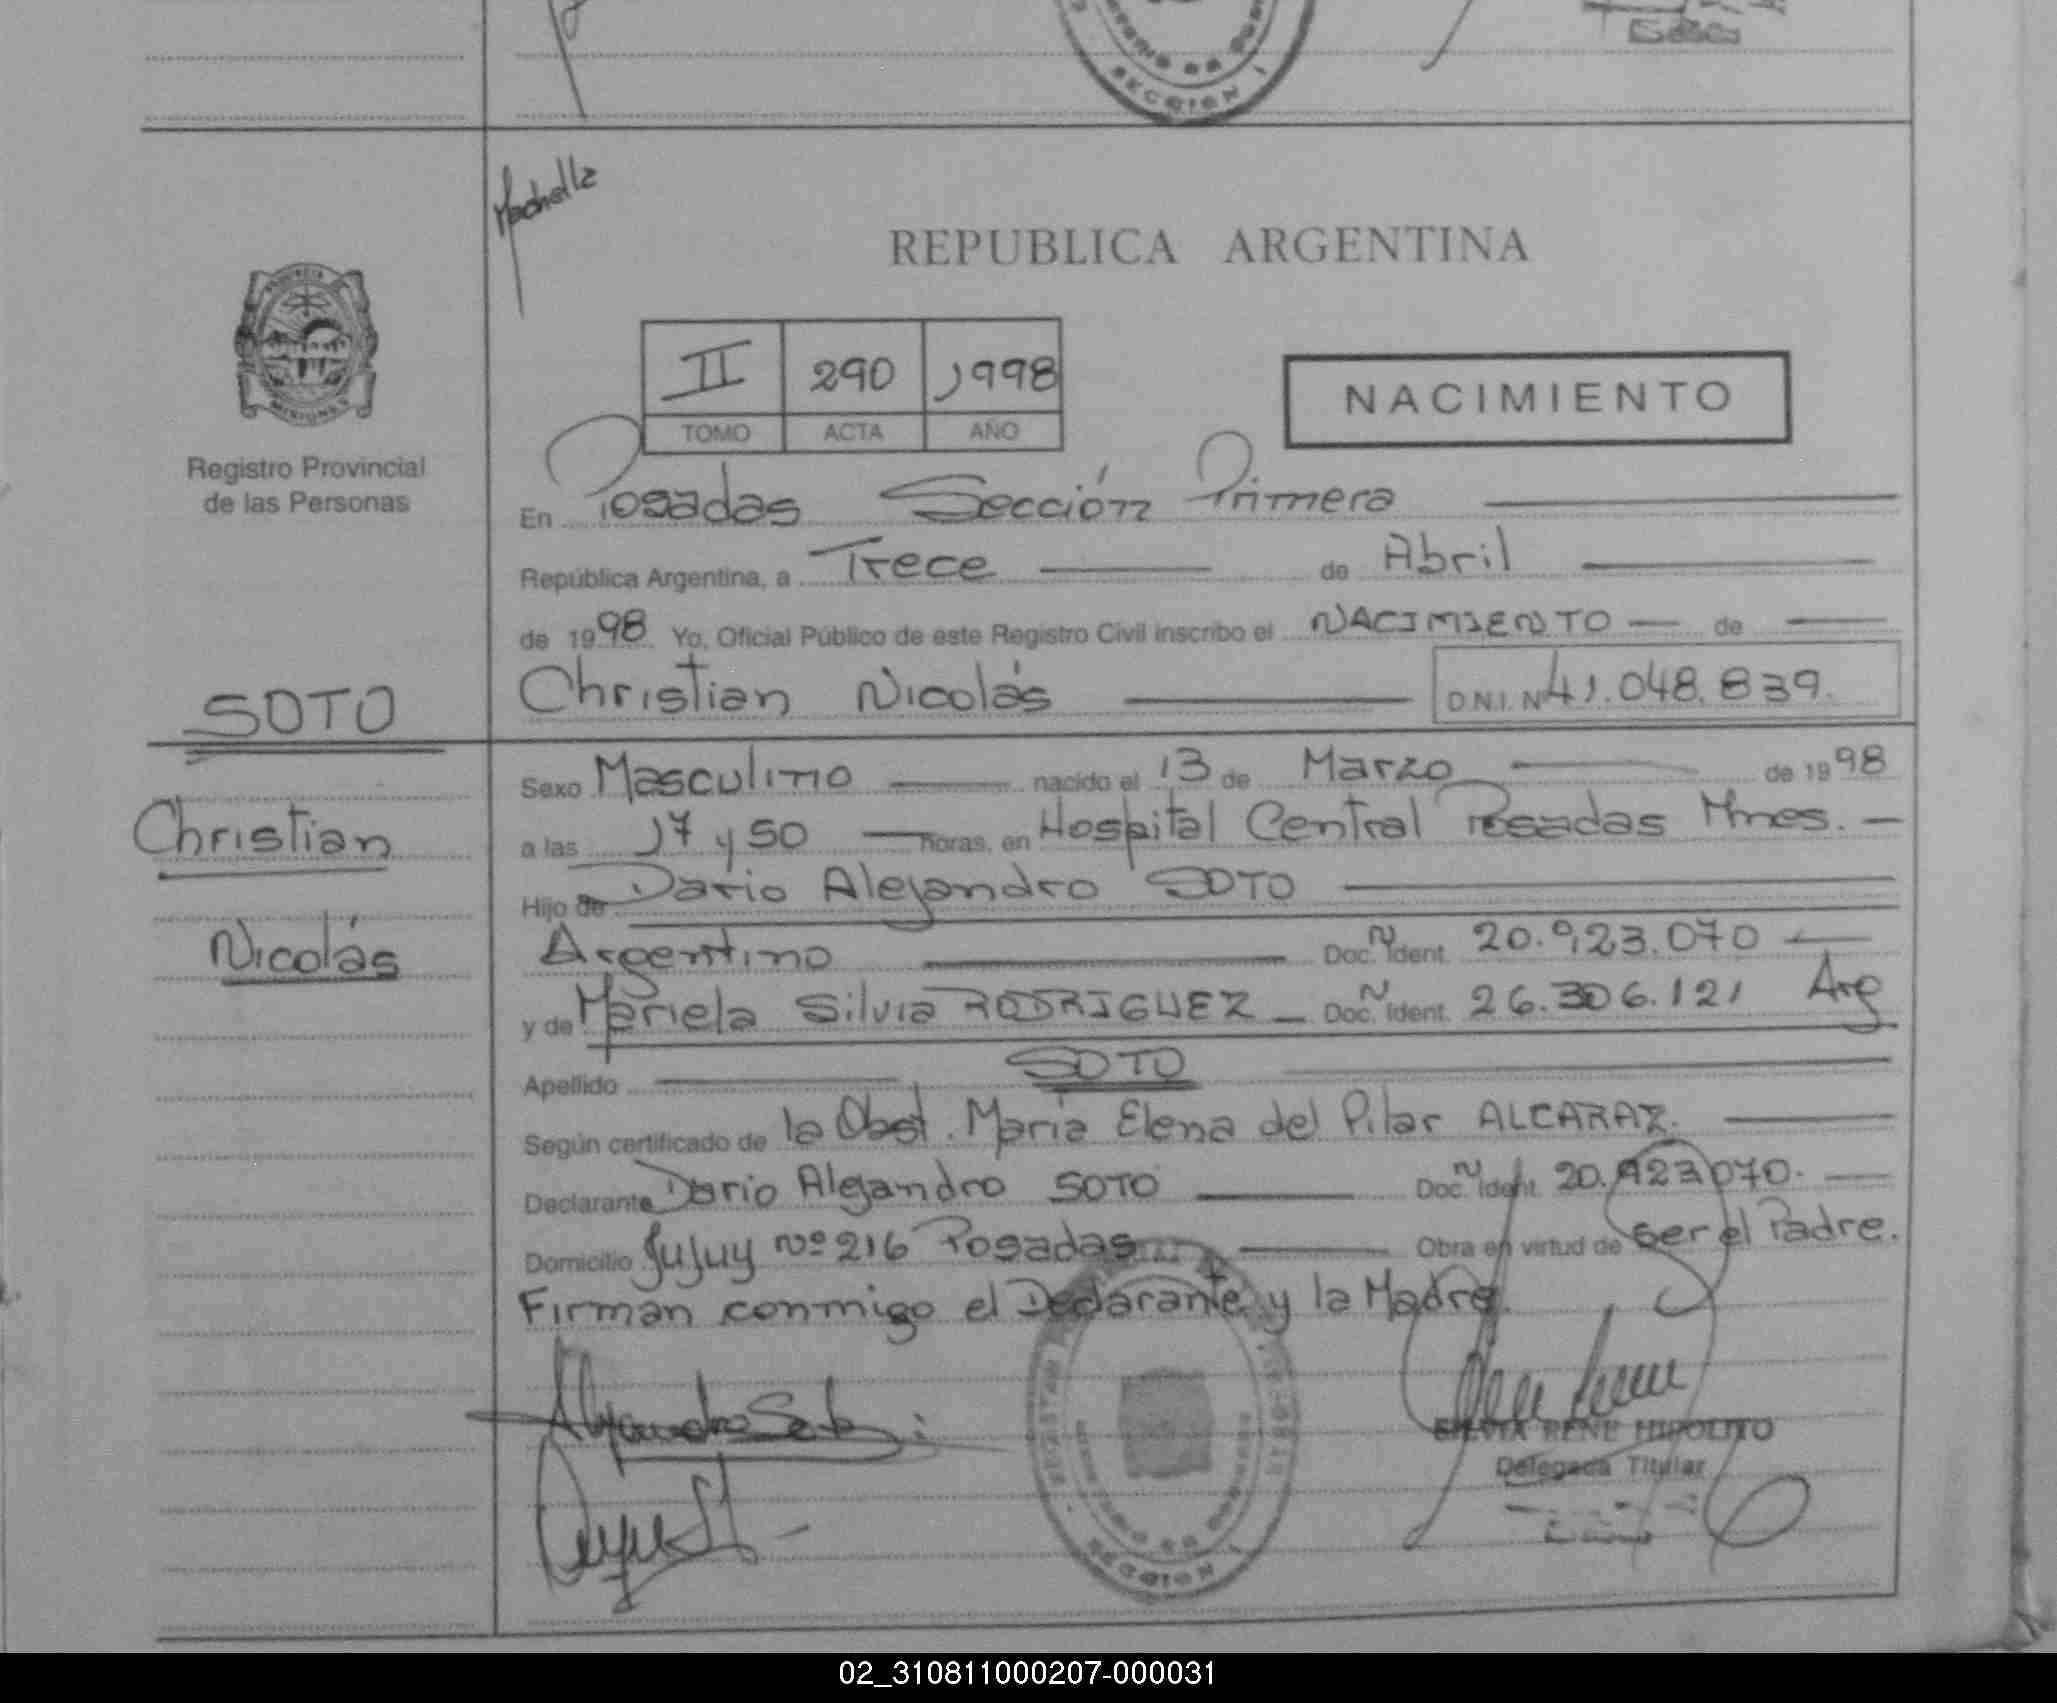 SECCION I
Machella
PROVINCIA
MISIONES
Registro Provincial
de las Personas
SOTO
Christian
Nicolás
REPUBLICA ARGENTINA
II 290 1998
TOMO ACTA AÑO
NACIMIENTO
En Posadas Sección Primera
República Argentina, a Trece de Abril
de 1998 Yo, Oficial Público de este Registro Civil inscribo el NACIMIENTO de
Christian Nicolás D.N.I. Nº 41.048.839.
Sexo Masculino nacido el 13 de Marzo de 1998
a las 17 y 50 horas, en Hospital Central Posadas Mnes.
Hijo de Dario Alejandro SOTO
Argentino Doc. N Ident. 20.923.070
y de Mariela Silvia RODRIGUEZ Doc. N Ident. 26.306.121 Arg
Apellido SOTO
Según certificado de la Obst. María Elena del Pilar ALCARAZ.
Declarante Dario Alejandro SOTO Doc. N Ident. 20.923070.
Domicilio Jujuy Nº 216 Posadas Obra en virtud de ser el Padre.
Firman conmigo el Declarante y la Madre.
Alejandro Soto
SILVIA RENE HIPOLITO
Delegada Titular
SECCION I
02_310811000207-000031